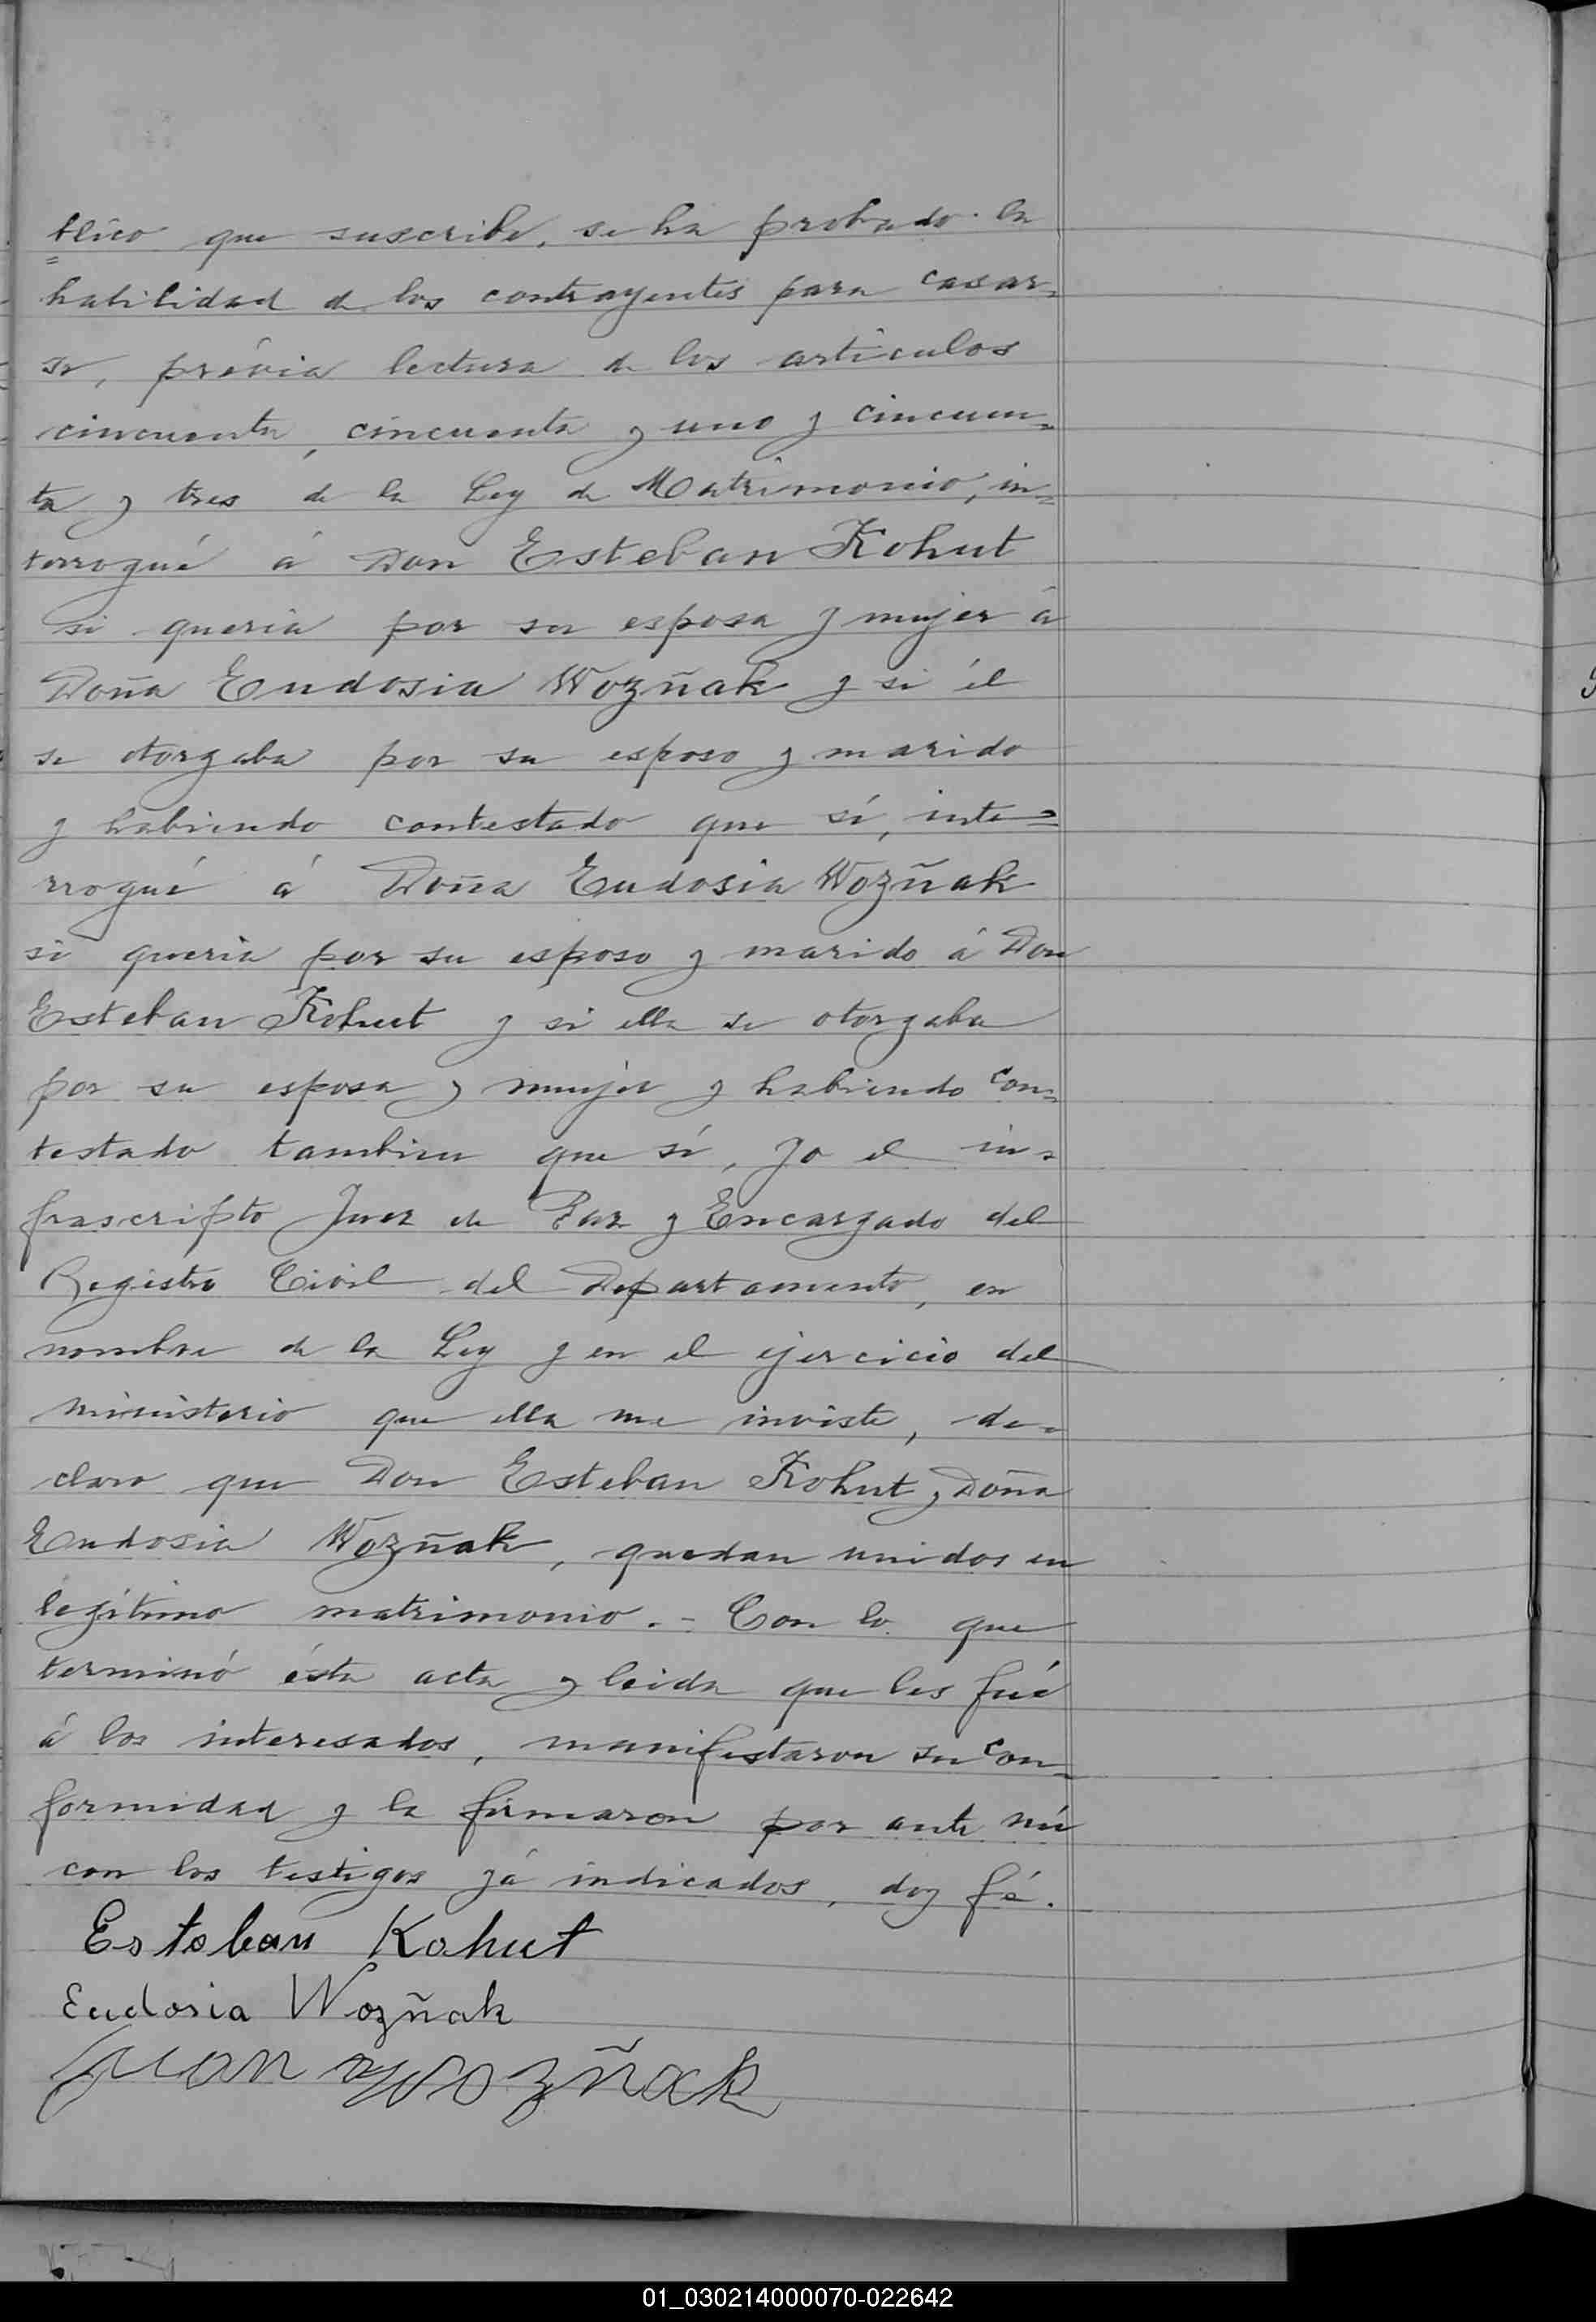 blico que suscribe, se ha probado la
habilidad de los contrayentes para casar=
se, prévia lectura de los artículos
cincuenta, cincuenta y uno y cincuen=
ta y tres de la Ley de Matrimonio, in=
terrogué á Don Esteban Kohut
si queria por su esposa y mujer á
Doña Eudosia Wozñak y si él
se otorgaba por su esposo y marido
y habiendo contestado que sí, inte=
rrogué á Doña Eudosia Wozñak
si queria por su esposo y marido á Don
Esteban Kohut y si ella se otorgaba
por su esposa y mujer y habiendo con=
testado tambien que sí, yo el in=
frascripto Juez de Paz y Encargado del
Registro Civil del Departamento, en
nombre de la Ley y en el ejercicio del
ministerio que ella me inviste, de=
claro que Don Esteban Kohut y Doña
Eudosia Wozñak, quedan unidos en
legítimo matrimonio.- Con lo que
terminó ésta acta y leida que les fué
á los interesados, manifestaron su con=
formidad y la firmaron por ante mí
con los testigos yá indicados, doy fé.
Esteban Kohut
Eudosia Wozñak
Juan Wozñak
01_030214000070-022642